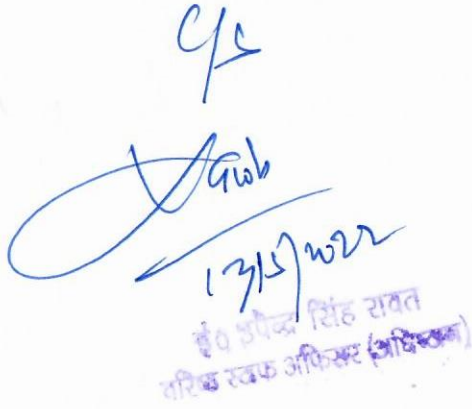 C/S
13/5/2022
इं० उपेन्द्र सिंह रावत
वरिष्ठ स्टाफ आफिसर (अधिष्ठान)